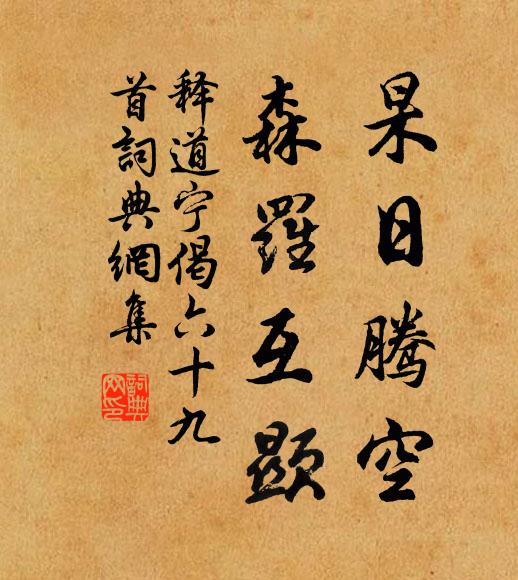 杲日騰空
森羅互顯
释道宁偈六十九
首詞典網集
詞典
网印